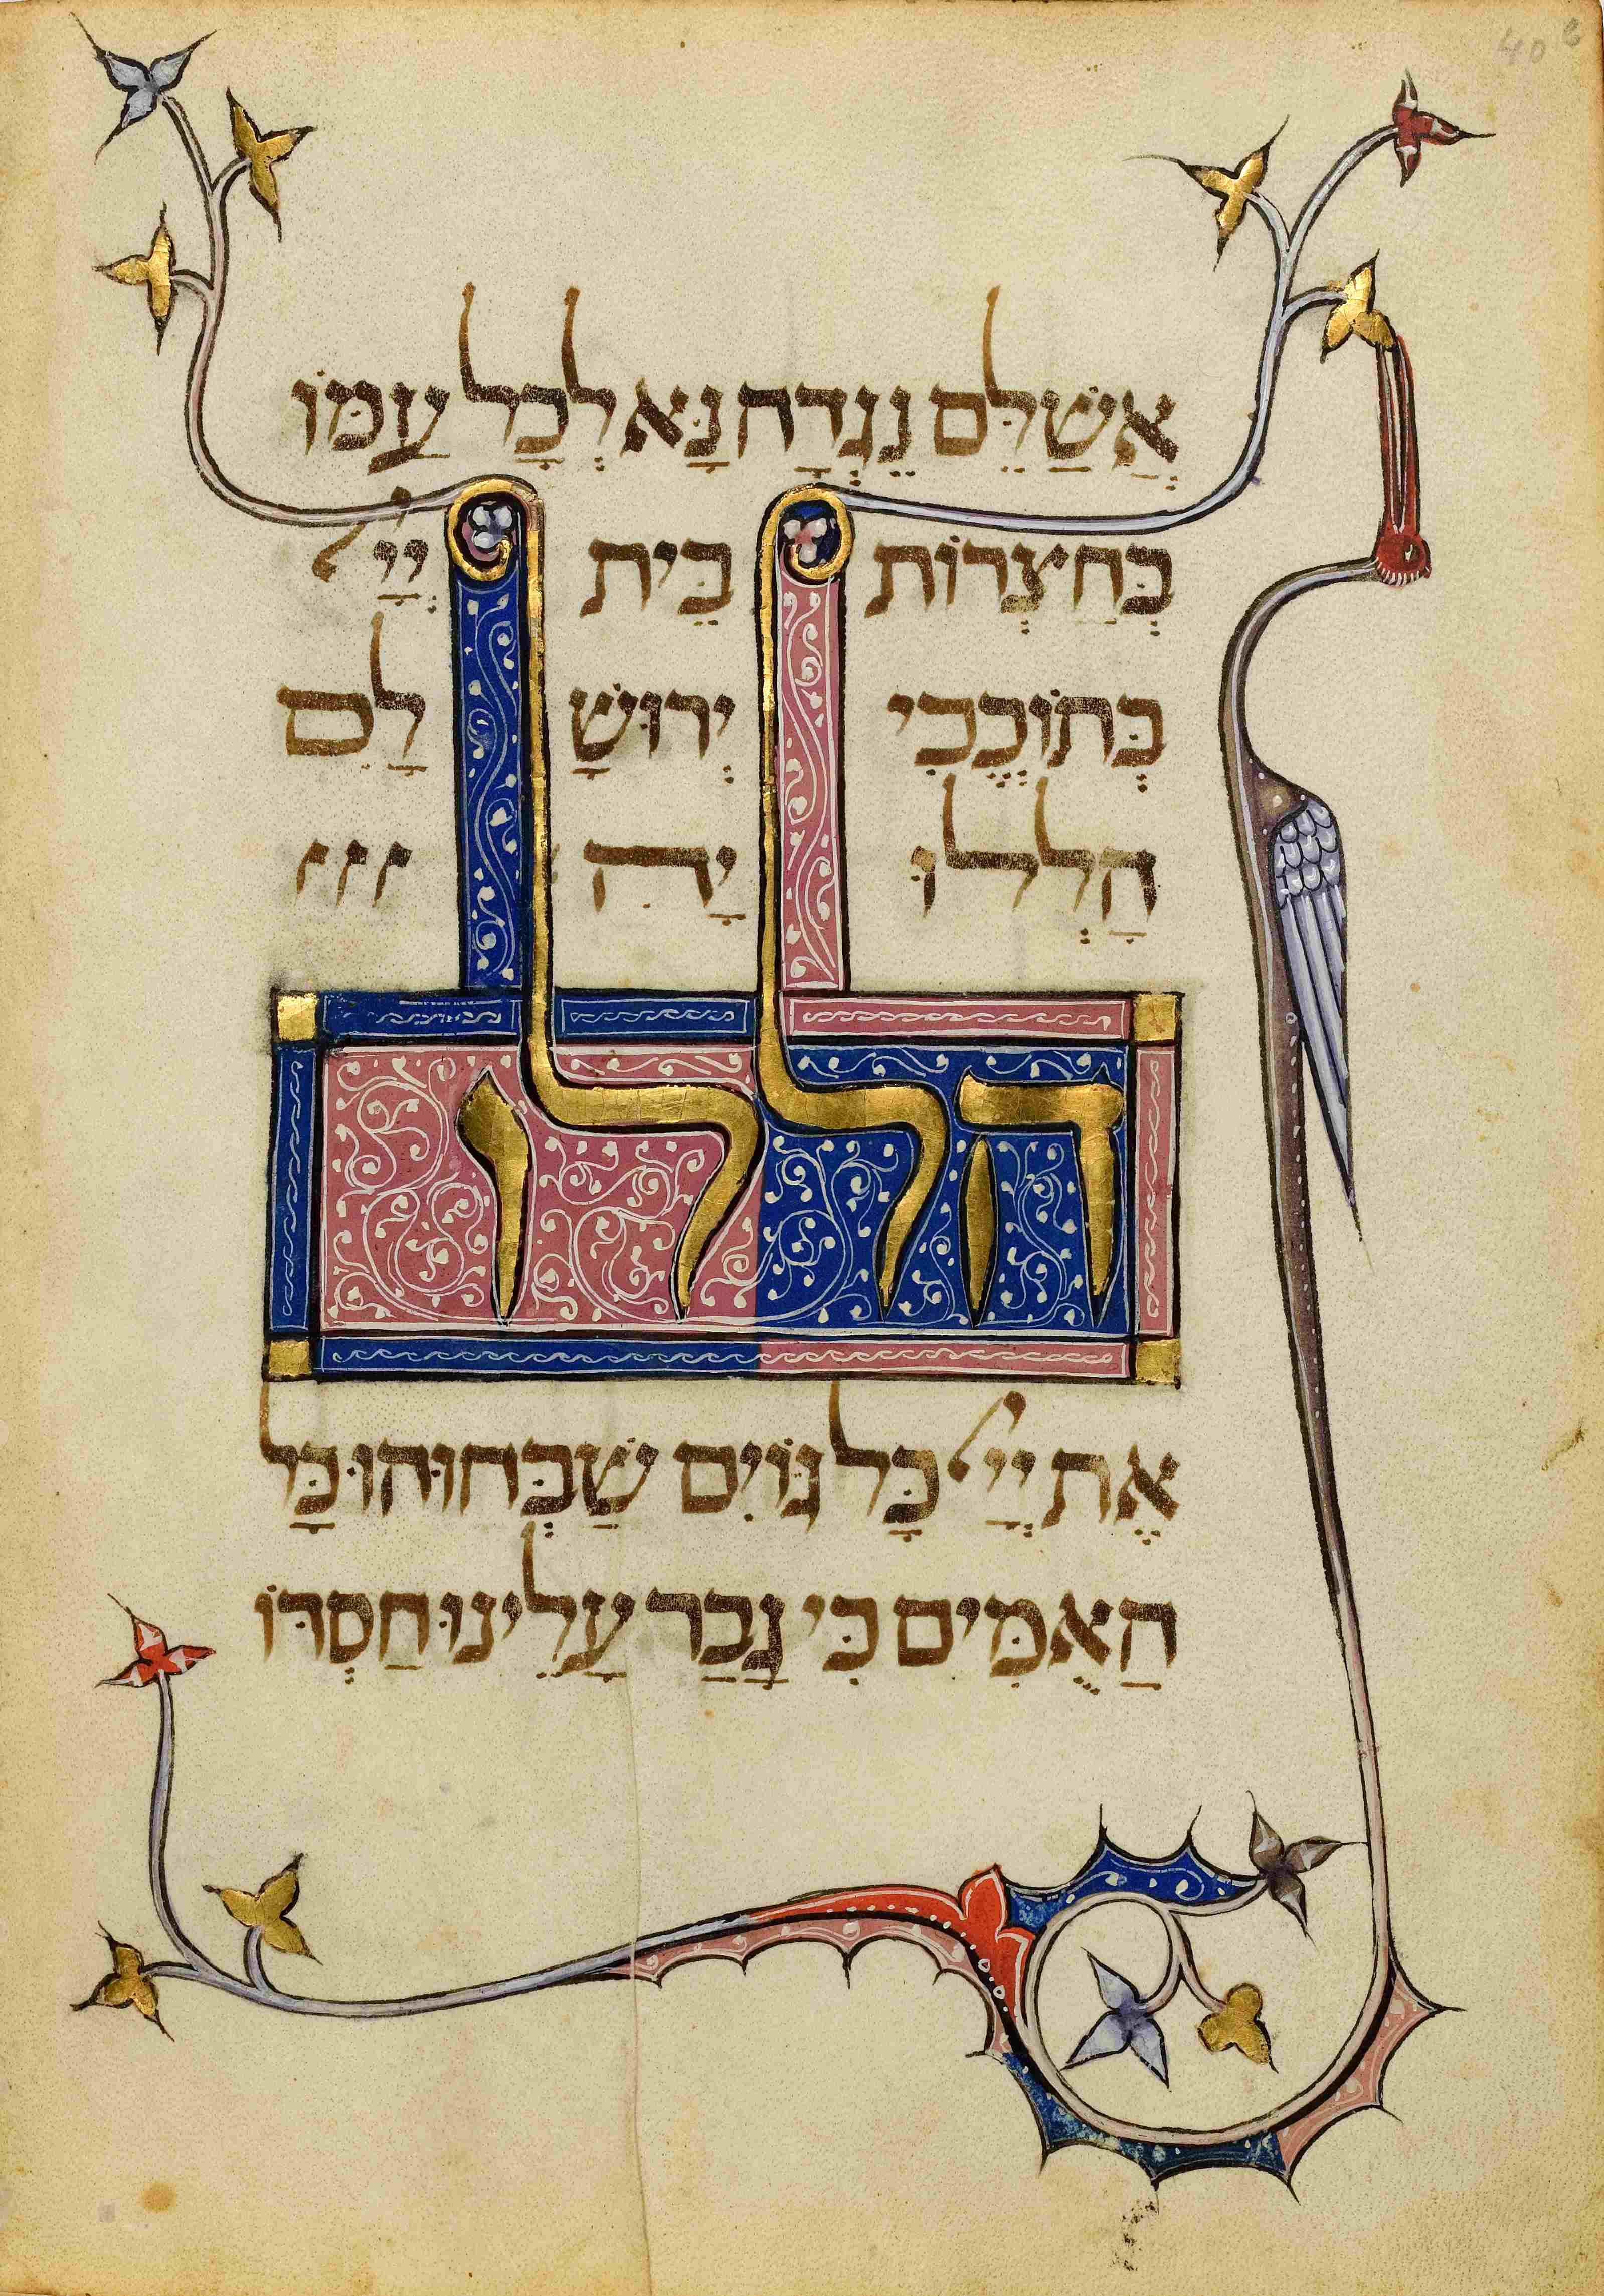 40
אֲשַׁלֵּם נֶגְדָה נָּא לְכָל עַמּוֹ
בְּחַצְרוֹת בֵּית יְיָ
בְּתוֹכֲכֵי יְרוּשָׁ לָםִ
הַלְלוּ יָהּ
הללו
אֶת יְיָ כָּל גּוֹיִם שַׁבְּחוּהוּ כָּל
הָאֻמִּים כִּי גָבַר עָלֵינוּ חַסְדּוֹ